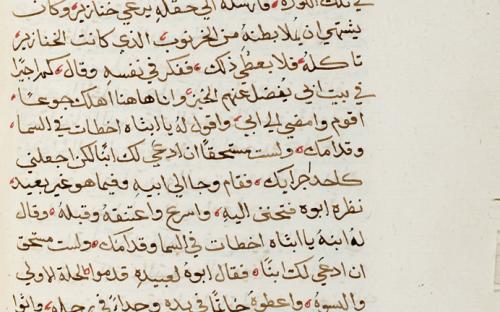 في تلك الكورة فارسله الي حقله يرعي خنازير وكان
يشتهي ان يملا بطنه من الخرنوب الذي كانت الخنازير
تاكله فلا يعطي ذلك ففكر في نفسه وقال كم اجيرا
في بيت ابي يفضل عنهم الخبز وانا هاهنا اهلك جوعا
اقوم وامضي الي ابي واقول له يا ابتاه اخطات في السما
وقدامك ولست مستحقا ان ادعي لك ابنا لكن اجعلني
كاحد اجرايك فقام وجا الي ابيه وفيما هو غير بعيد
نظره ابوه فتحنن اليه واسرع واعتنقه وقبله وقال
له ابنه يا ابتاه اخطات في السما وقدامك ولست مستحق
ان ادعي لك ابنا فقال ابوه لعبيده قدموا الحلة الاولي
والبسوه واعطوه خاتما في يده وحذاء في رجليه واتوا